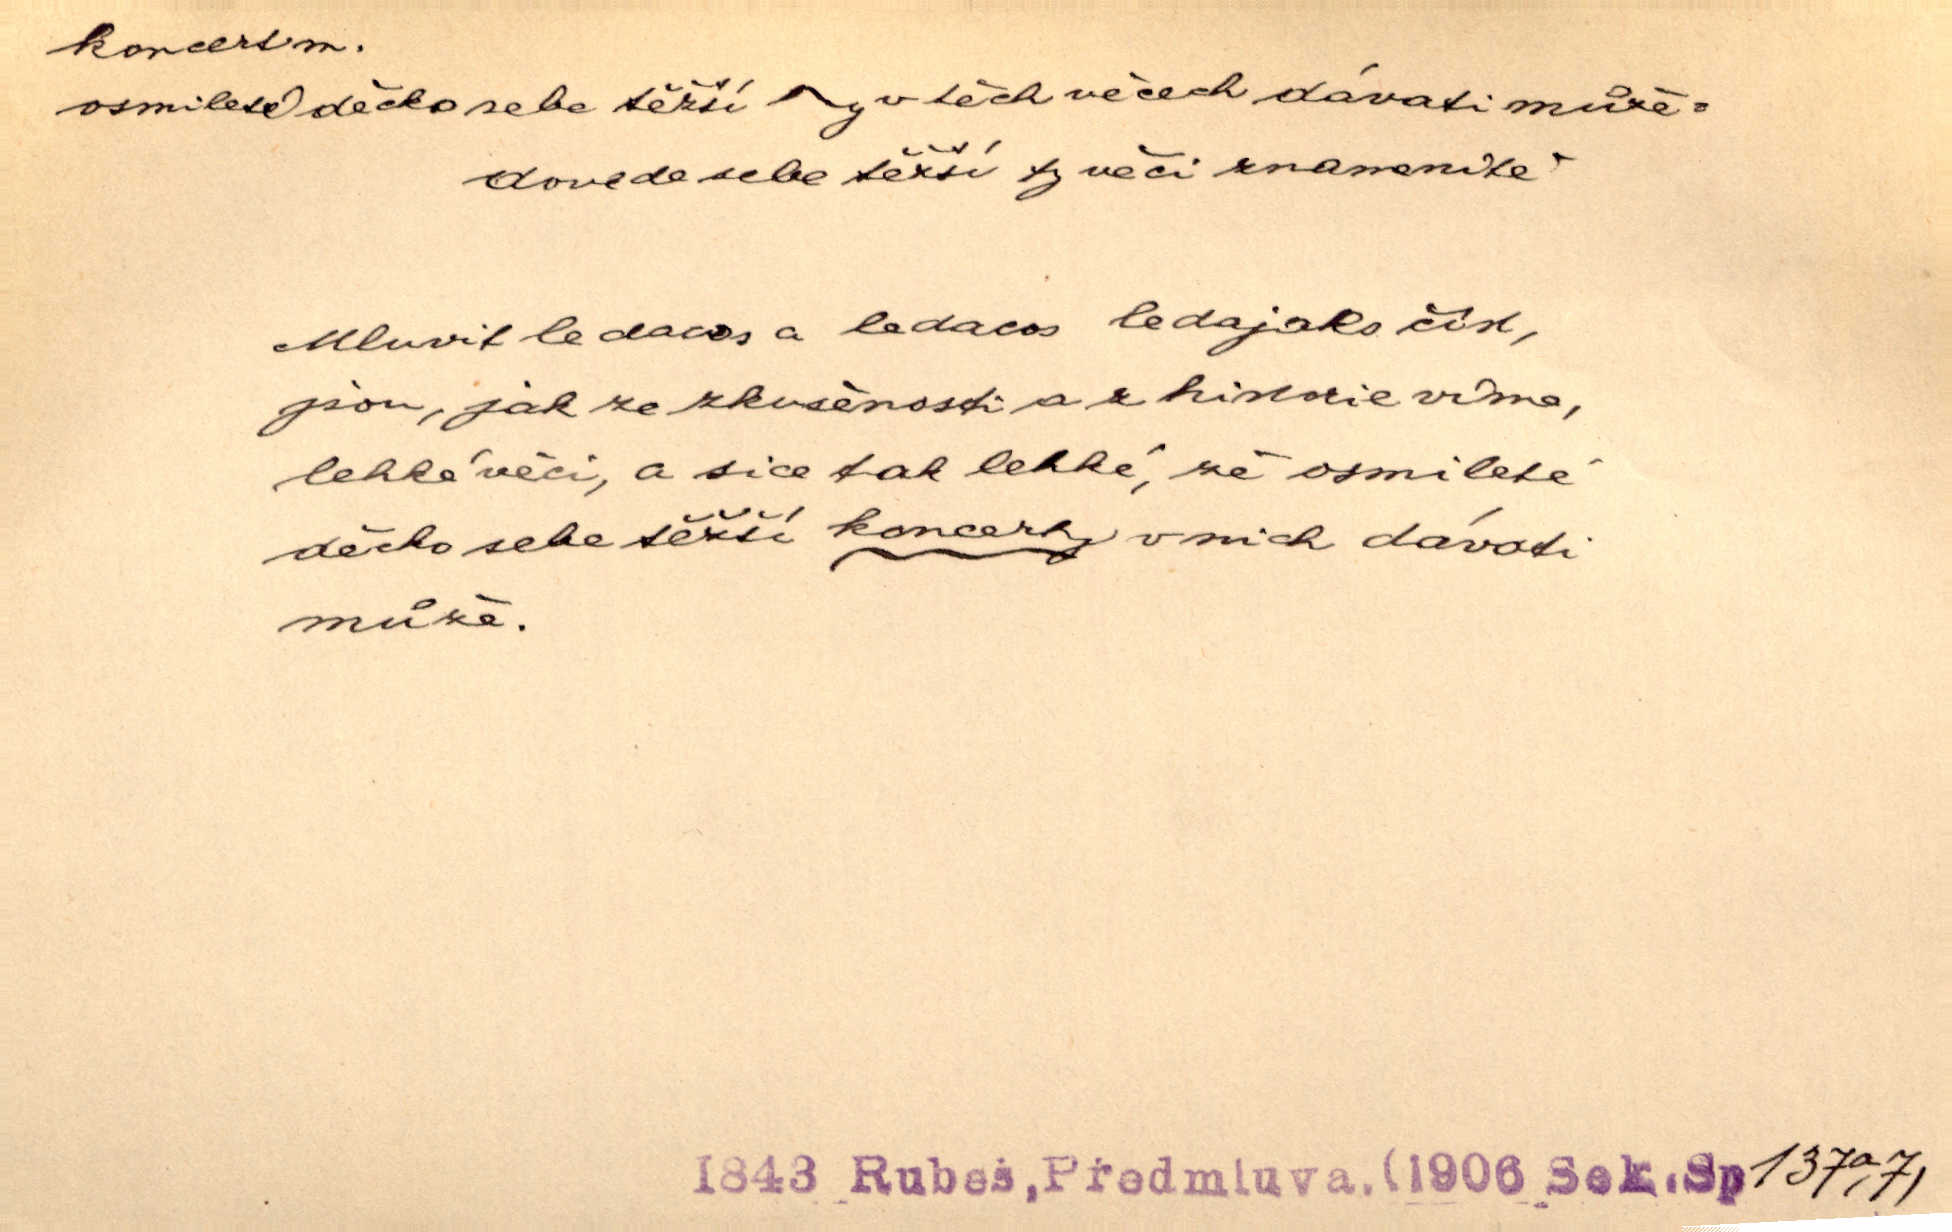 koncert m.
osmileté děcko sebe těžší ~y v těch věcech dávati může =
dovede sebe těžší ty věci znamenitě
Mluvit ledacos a ledacos ledajako číst,
jsou, jak ze zkušenosti a z historie víme,
lehké věci, a sice tak lehké, že osmileté
děcko sebe těžší koncerty v nich dávati
může.
1843 Rubeš,Předmluva.(1906 Sek.Sp 137a,7,